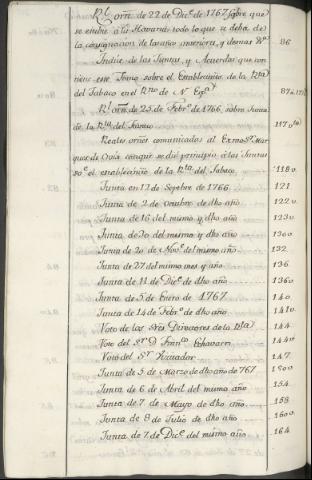 Rl. orñ. de 22 de Dicre. de 1767 sobre que
se embie a la Havana todo lo que se deba de
la consignacion de los años anteriores, y demas Rs. 86
Indice de las Juntas, y Acuerdos que con
tiene este Tomo sobre el Establecimto. de la Rta.
del Tabaco en el Rno. de N. Espa.
Rl. orñ. de 25 de Febro. de 1766, sobre
de la Rta. del Tabaco 117
Reales orñes comunicadas al Exmo. Sr. Mar
ques de con que se dió principio á las Juntas
soe. el establecimto. de la Rta. del Tabaco 118 v.
Junta en 12 Sepbre de 1766 121
Junta de 2 de octubre de dho año 122 v.
Junta de 16 del mismo y dho año 123 v.
Junta de 30 del mismo y dho año 130 v.
Junta de 20 de Nove. del mismo año 132
Junta de 27 del mismo mes y año 136
Junta de 11 de Dicre. de dho año 136 v.
Junta de 5 de Enero de 1767 140
Junta de 14 de Febro. de dho año 141 v.
Voto de los Sres Directores de la Rta. 144
Voto del Sr. D. Franco. Echavarri 144 v.
Voto del Sr. 147
Junta de 5 de Marzo de dho año de 767 150 v.
Junta de 6 de Abril del mismo año 154
Junta de 7 de Mayo de dho año 158
Junta de 8 de Julio de dho año 160 v.
Junta de 7 de Dicre. del mismo año 164